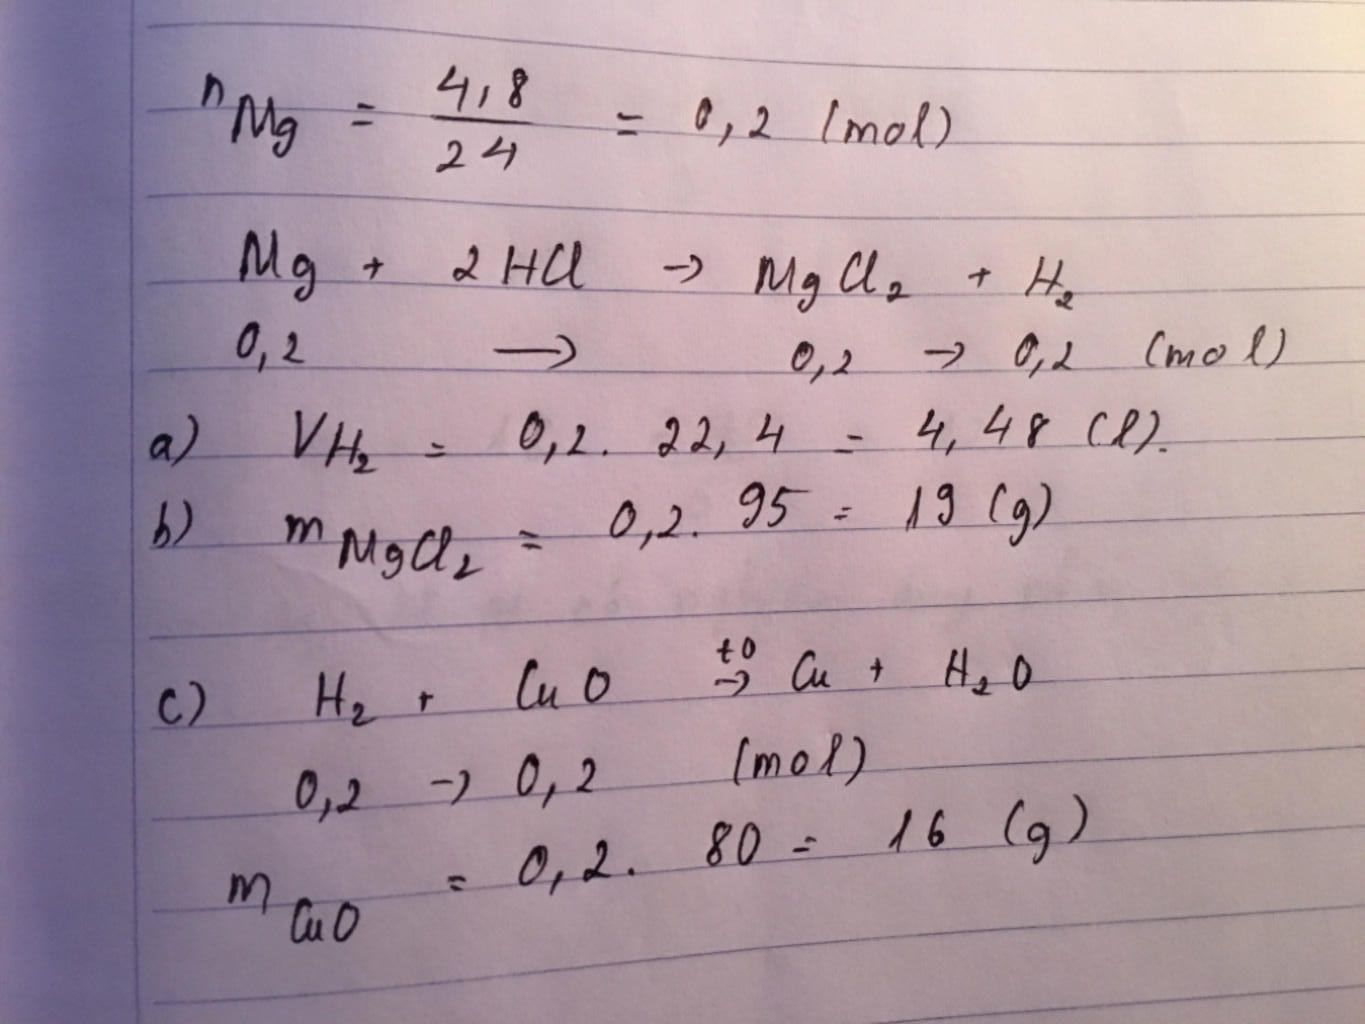 nMg = 4,8/24 = 0,2 (mol)
Mg + 2HCl → MgCl₂ + H₂
0,2 → 0,2 → 0,2 (mol)
a) VH₂ = 0,2. 22,4 = 4,48 (l).
b) mMgCl₂ = 0,2. 95 = 19 (g)
c) H₂ + CuO t0→ Cu + H₂O
0,2 → 0,2 (mol)
mCuO = 0,2. 80 = 16 (g)